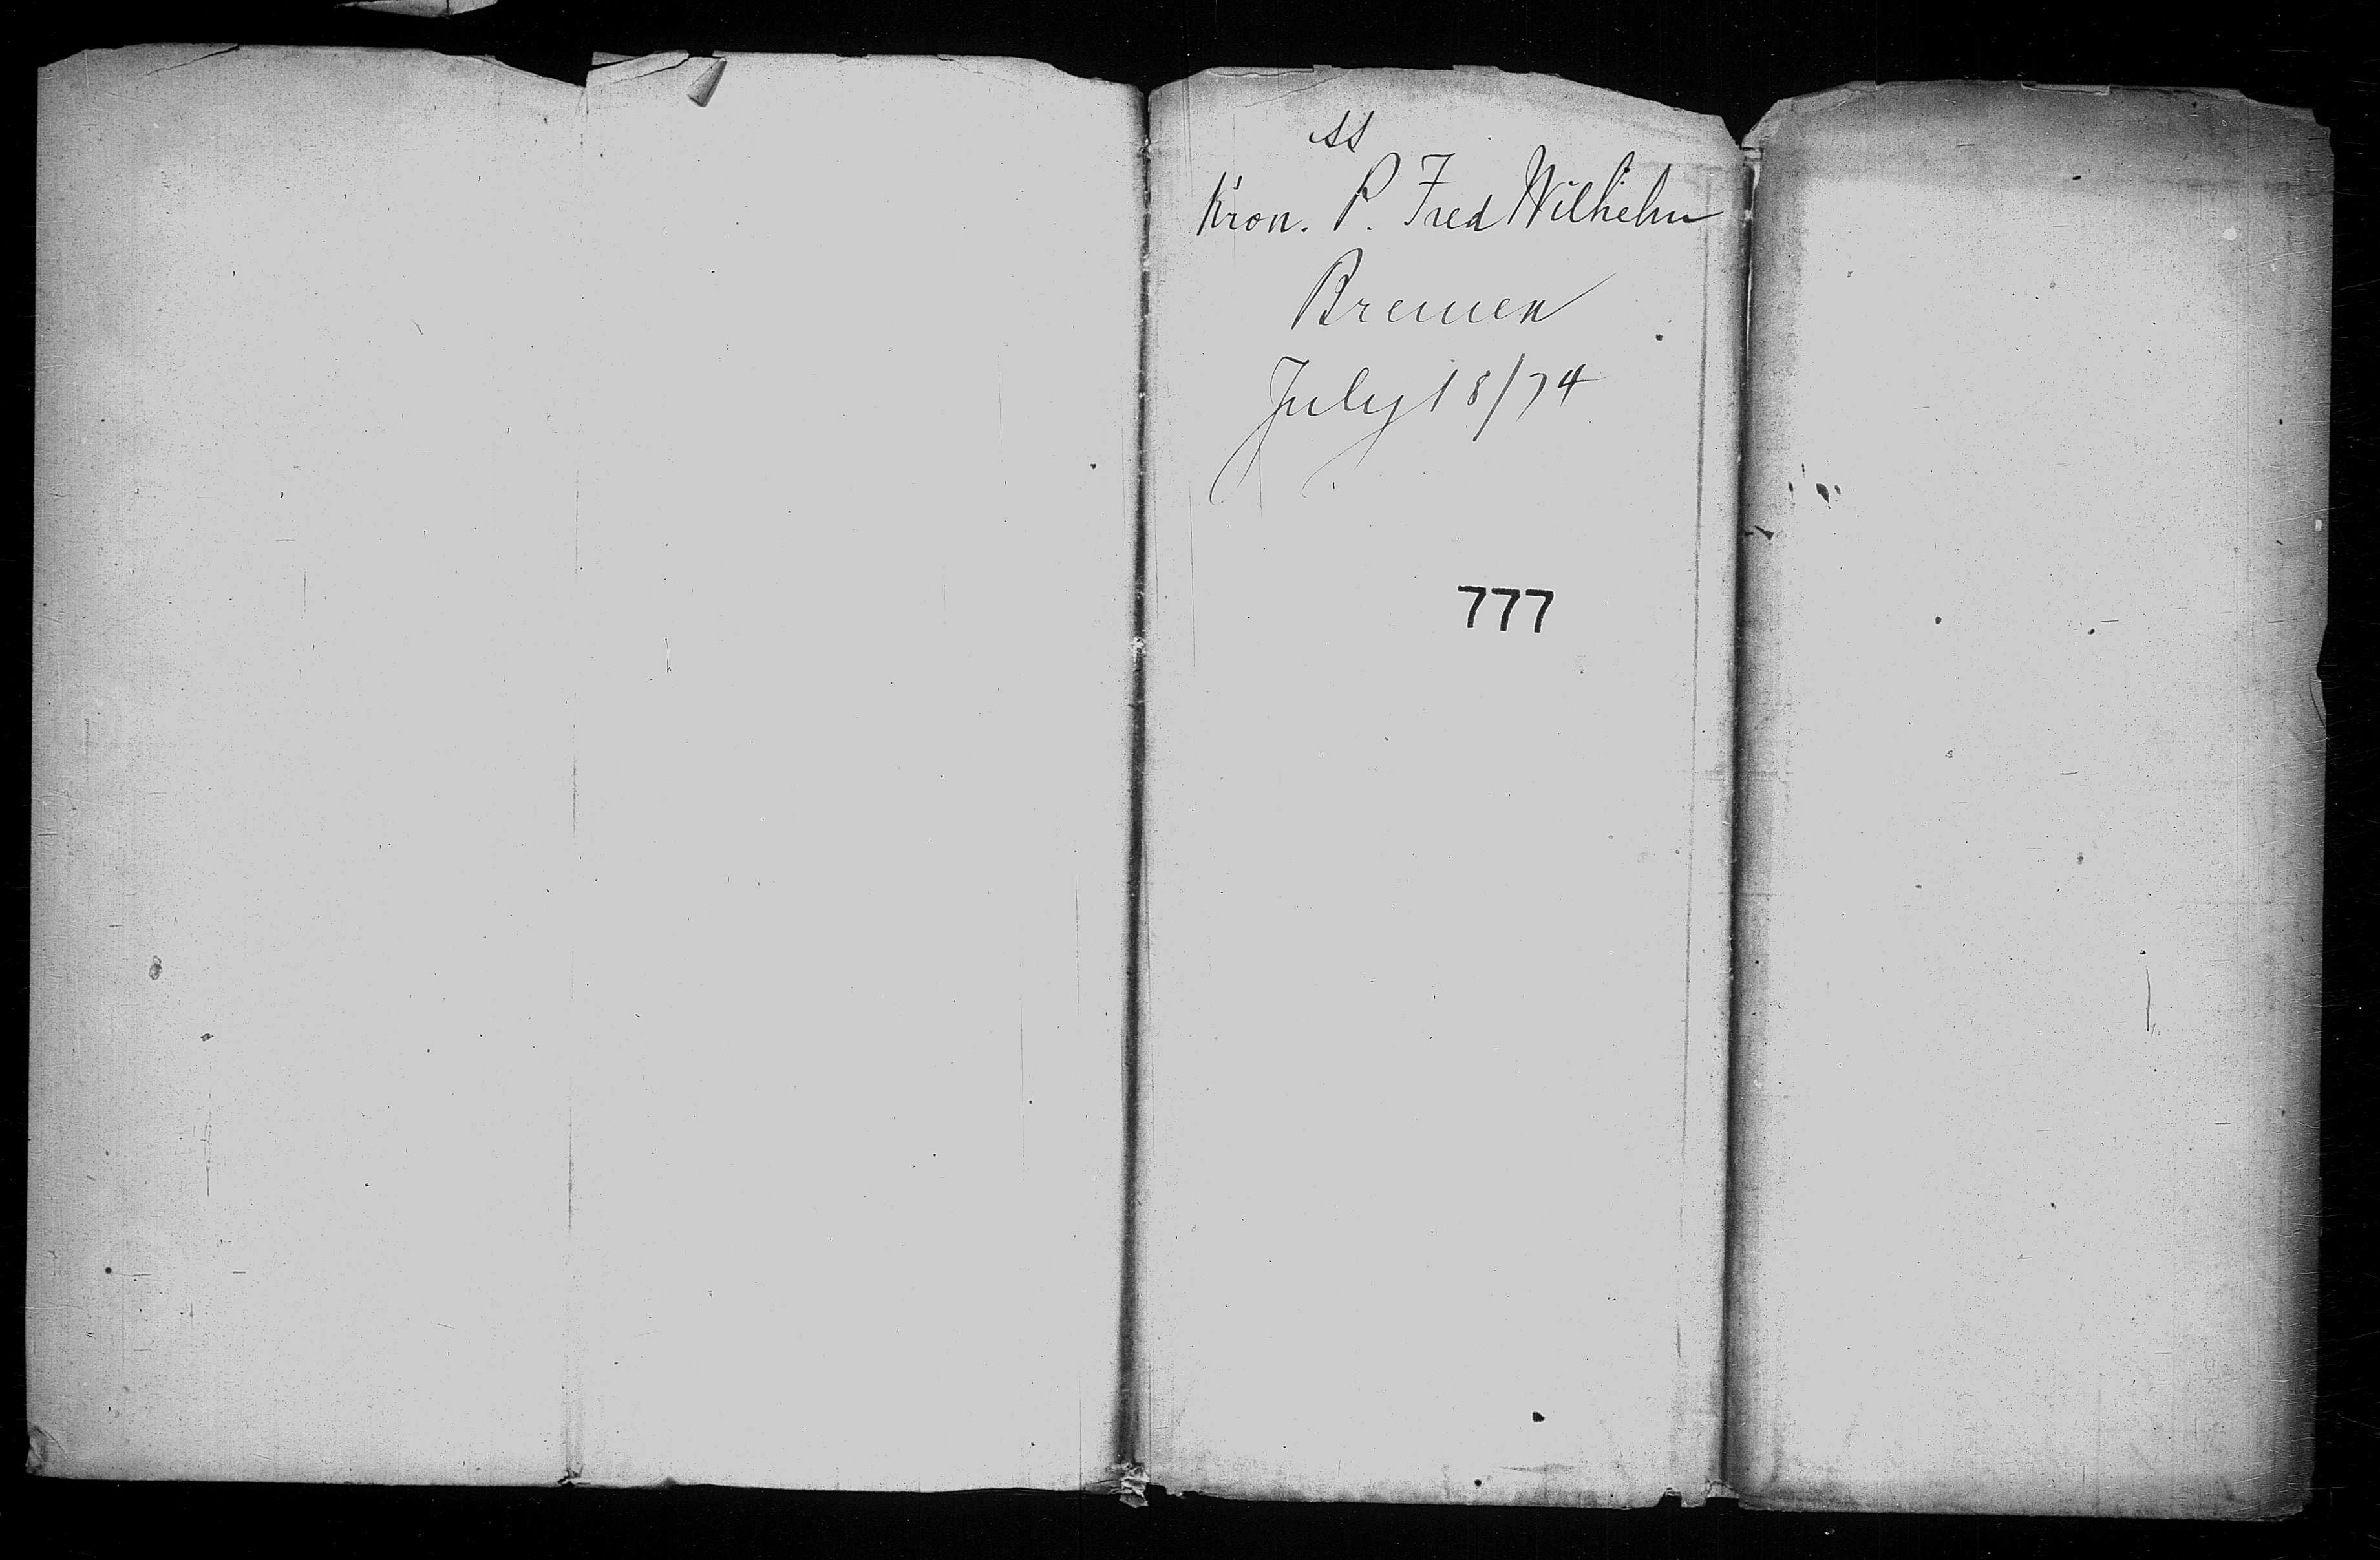 SS
Kron. P. Fred Wilhelm
Bremen
July 18/74
777